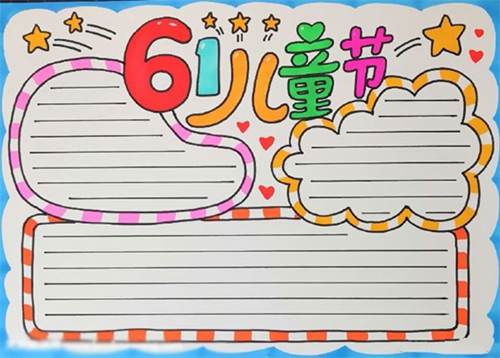 61儿童节